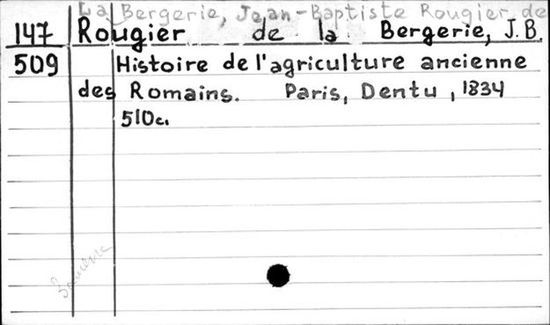 La Bergerie, Jean-Baptiste Rougier de
147 Rougier de la Bergerie, J.B.
509 Histoire de l'agriculture ancienne
des Romains. Paris, Dentu, 1834
510c.